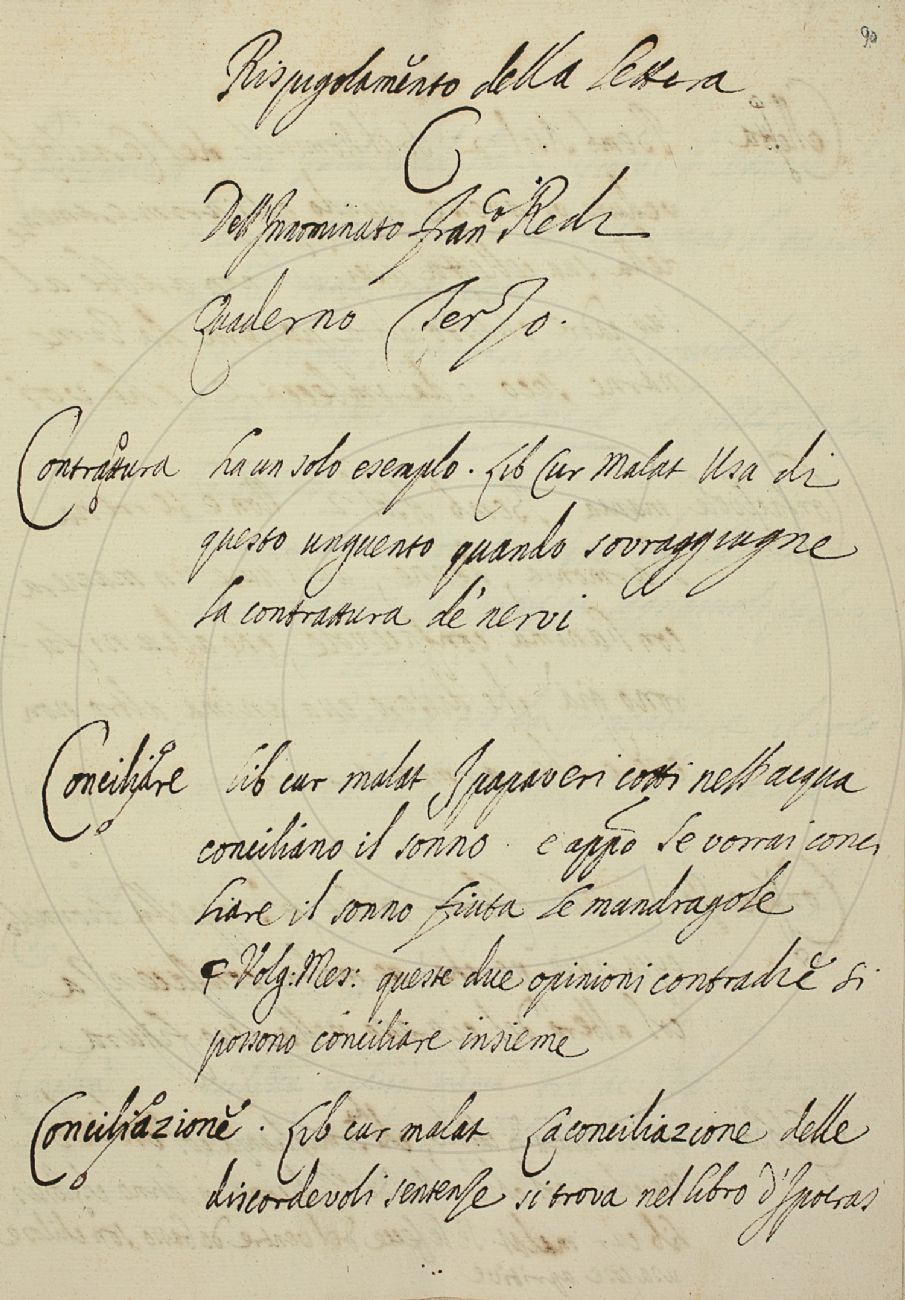 90
Rispigolamẽnto della Lettera
C
Dell'Innominato Fran.co Redi
Quaderno Terzo.
Contrattura ha un solo esemplo. Lib Cur Malat Usa di
questo unguento quando sovraggiugne
la contrattura de' nervi
Conciliare Lib cur malat I papaveri cotti nell'acqua
conciliano il sonno. e app̃o Se vorrai conci
liare il sonno fiuta le mandragole
Volg: Mes: queste due opinioni contradiẽ si
possono conciliare insieme
Conciliazionẽ. Lib cur malat La conciliazione delle
discordevoli sentenze si trova nel libro d'Ipocras